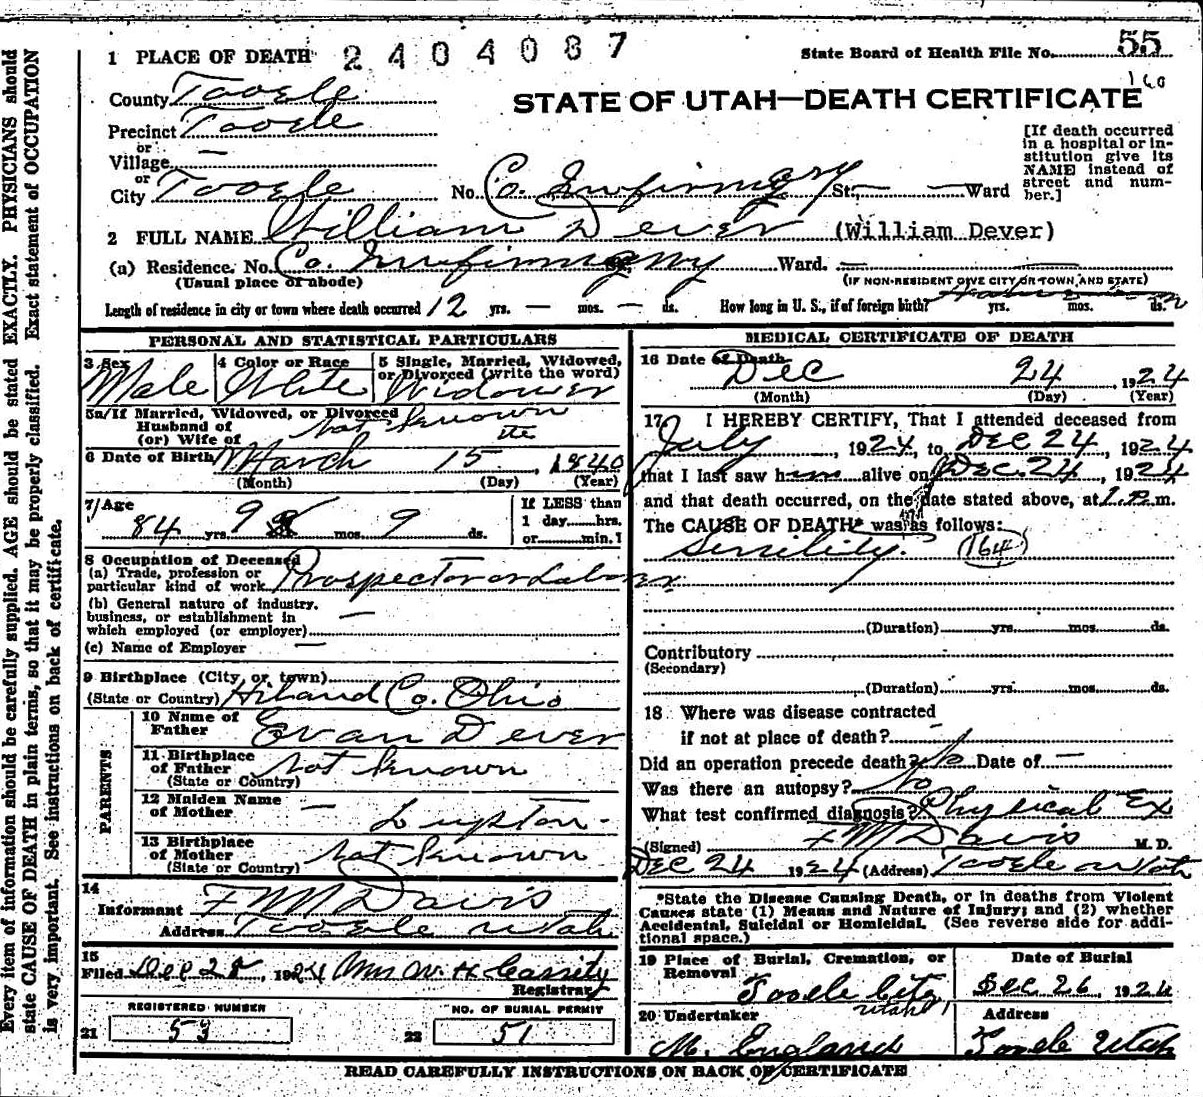 1 PLACE OF DEATH 2404087
State Board of Health File No. 55
160
County Tooele
STATE OF UTAH—DEATH CERTIFICATE
Precinct Tooele
or
Village —
or
City Tooele No. Co. Infirmary St. — — Ward
[If death occurred
in a hospital or in-
stitution give its
NAME instead of
street and num-
ber.]
2 FULL NAME William Dever (William Dever)
(a) Residence. No. Co. Infirmary St. Ward. —
(Usual place of abode)
(IF NON-RESIDENT GIVE CITY OR TOWN AND STATE)
Length of residence in city or town where death occurred 12 yrs. — mos. — ds. How long in U. S., if of foreign birth? yrs. mos. ds.
PERSONAL AND STATISTICAL PARTICULARS
3 Sex Male
4 Color or Race White
5 Single, Married, Widowed,
or Divorced (write the word)
Widower
5a/If Married, Widowed, or Divorced
Husband of
(or) Wife of
Not known
6 Date of Birth March 15 the, 1840
(Month) (Day) (Year)
7/Age
84 yrs. 9 mos. 9 ds.
If LESS than
1 day......hrs.
or......min.1
8 Occupation of Deceased
(a) Trade, profession or
particular kind of work Prospector or Laborer
(b) General nature of industry,
business, or establishment in
which employed (or employer) —
(c) Name of Employer —
9 Birthplace (City or town)
(State or Country) Hiland Co. Ohio
PARENTS
10 Name of
Father Evan Dever
11 Birthplace
of Father Not known
(State or Country)
12 Maiden Name
of Mother — Lupton -
13 Birthplace
of Mother Not known
(State or Country)
14
Informant F M Davis
Address Tooele Utah
15
Filed Dec 28, 1924 Mrs W H Cassity
Registrar
REGISTERED NUMBER
21 53
NO. OF BURIAL PERMIT
22 51
MEDICAL CERTIFICATE OF DEATH
16 Date of Death
Dec 24, 1924
(Month) (Day) (Year)
17 I HEREBY CERTIFY, That I attended deceased from
July, 1924, to Dec 24, 1924
that I last saw him alive on Dec. 24, 1924
and that death occurred, on the date stated above, at 1. P. m.
The CAUSE OF DEATH* was as follows:
Senility. (164)
(Duration) yrs. mos. ds.
Contributory
(Secondary)
(Duration) yrs. mos. ds.
18 Where was disease contracted
if not at place of death?
Did an operation precede death? No Date of —
Was there an autopsy? No
What test confirmed diagnosis? Physical Ex
(Signed) F M Davis M. D.
Dec 24 1924 (Address) Tooele Utah
*State the Disease Causing Death, or in deaths from Violent
Causes state (1) Means and Nature of Injury; and (2) whether
Accidental, Suicidal or Homicidal. (See reverse side for addi-
tional space.)
19 Place of Burial, Cremation, or
Removal
Tooele City
Utah
Date of Burial
Dec 26, 1924
20 Undertaker
M. England
Address
Tooele Utah
READ CAREFULLY INSTRUCTIONS ON BACK OF CERTIFICATE
Every item of information should be carefully supplied. AGE should be stated EXACTLY. PHYSICIANS should
state CAUSE OF DEATH in plain terms, so that it may be properly classified. Exact statement of OCCUPATION
is very important. See instructions on back of certificate.